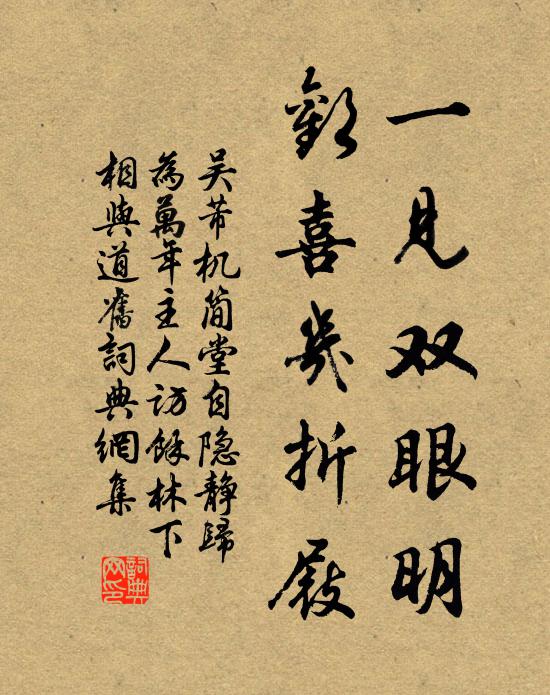 一见双眼明
歡喜幾折屐
吴芾机简堂自隐静歸
為萬年主人访馀林下
相與道舊詞典網集
詞典
网印